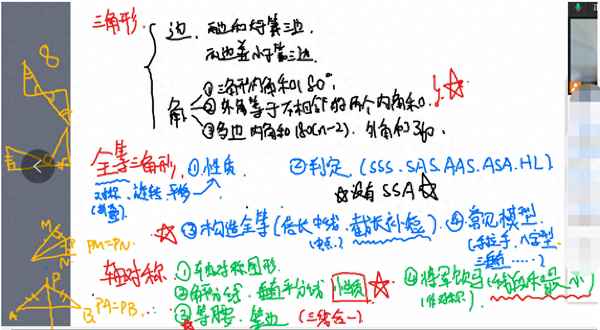 三角形
边. 两边和大于第三边.
两边差小于第三边.
角
①三角形内角和180°.
②外角等于不相邻的两个内角和.
③多边 内角和180(n-2). 外角和360.
8
全等三角形. ①性质. ②判定. (SSS. SAS. AAS. ASA. HL)
旋转. 平移
没有 SSA
③构造全等 (倍长中线. 截长补短). ④常见模型.
(手拉手. 八字型
三垂 ......)
M
P
N
PM=PN
轴对称. ①轴对称图形.
②角平分线. 垂直平分线 性质
③等腰. 等边 (三线合一)
④将军饮马 (线段和最小)
P
A
B
PA=PB